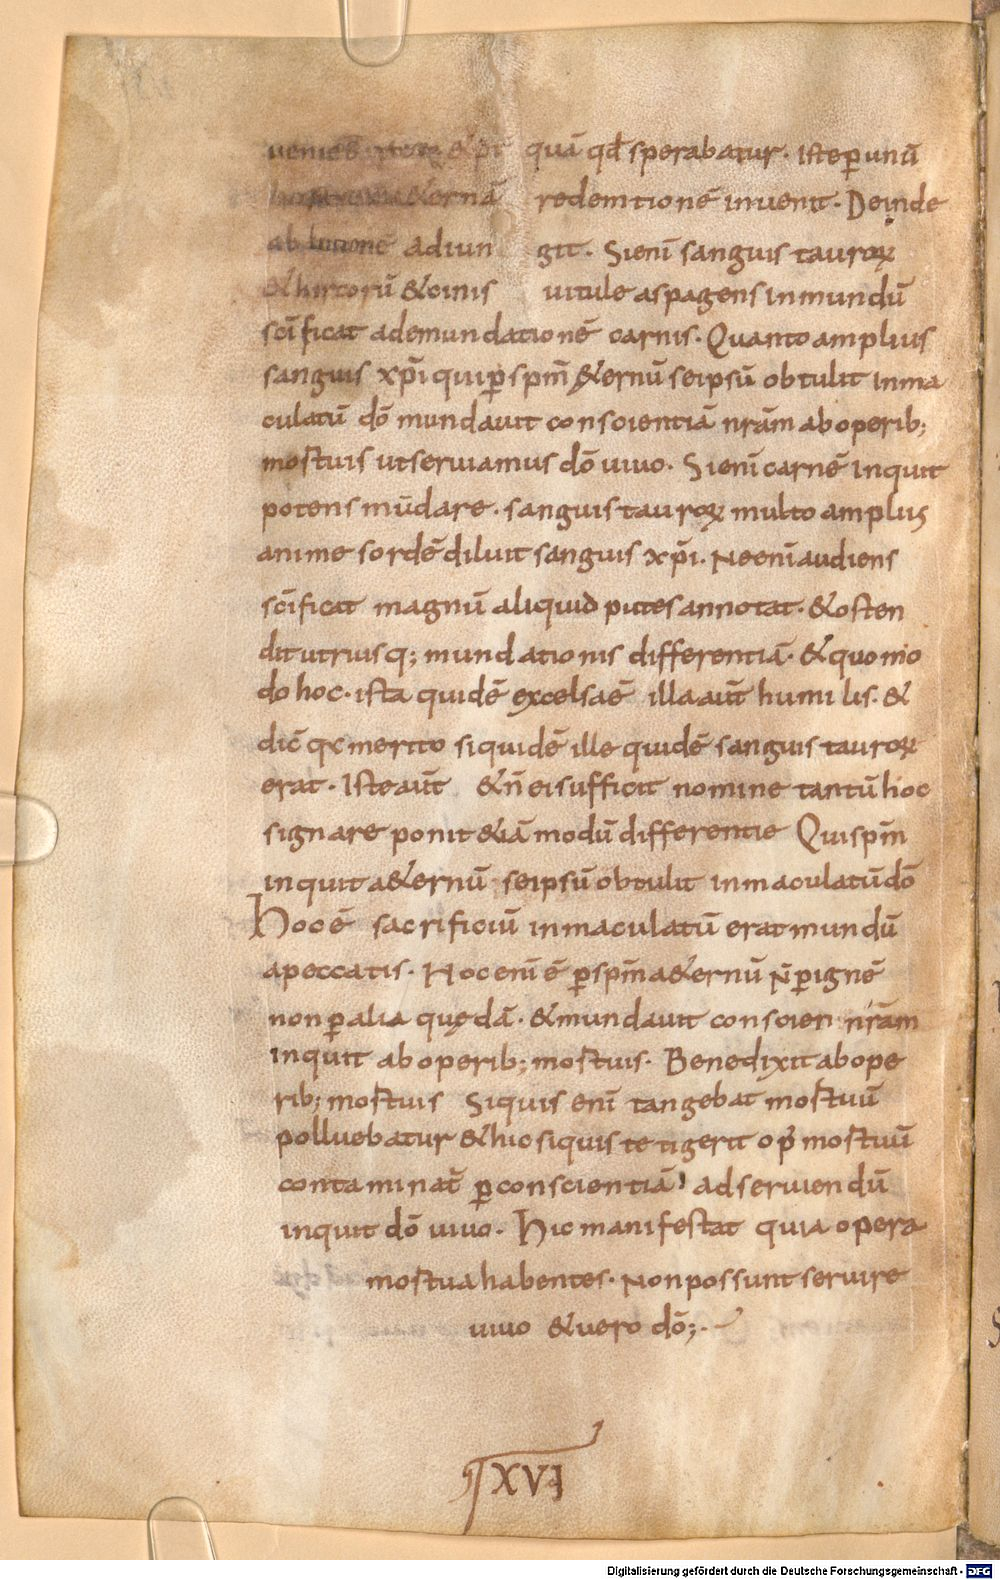 quā qđ sperabatur · Iste ꝑ unā
redemtionē inuenit · Deinde
ab lutione adiun git · Si enī sanguis tauroꝝ
& hircorū & cinis uitule aspargens inmundū
scīficat ad emundationē carnis · Quanto amplius
sanguis xp̄i qui ꝑ sp̄m &ernū seipsū obtulit inma
culatū dō mundauit conscientiā nr̄am ab operib;
mortuis ut seruiamus dō uiuo · Si enī carnē inquit
potens mūdare · sanguis tauroꝝ multo amplius
anime sordē diluit sanguis xp̄i · Ne enī audiens
scīficat magnū aliquid putes annotat · & osten
dit utriusq; mundationis differentiā · & quomo
do hoc · ista quidē excelsa ē illa aūt humilis · &
dic̄ qx merito siquidē ille quidē sanguis tauroꝝ
erat · Iste aūt & n̄ ei sufficit nomine tantū hoc
signare ponit &iā modū differentie Qui sp̄m
inquit a&ernū seipsū obtulit inmaculatū dō
Hoc ē sacrificiū inmaculatū erat mundū
a peccatis · Hoc enī ē ꝑ sp̄m a&ernū N̄ ꝑ ignē
non ꝑ alia quędā · & mundauit conscien nr̄am
inquit ab operib; mortuis · Bene dixit ab ope
rib; mortuis Siquis enī tangebat mortuū
polluebatur & hic siquis tetigerit op̄ mortuū
contaminat̄ ꝑ conscientiā ad seruiendū
inquit dō uiuo · Hic manifestat quia opera
mortua habentes · Non possunt seruire
uiuo & uero dō;·
XVI
Digitalisierung gefördert durch die Deutsche Forschungsgemeinschaft - DFG